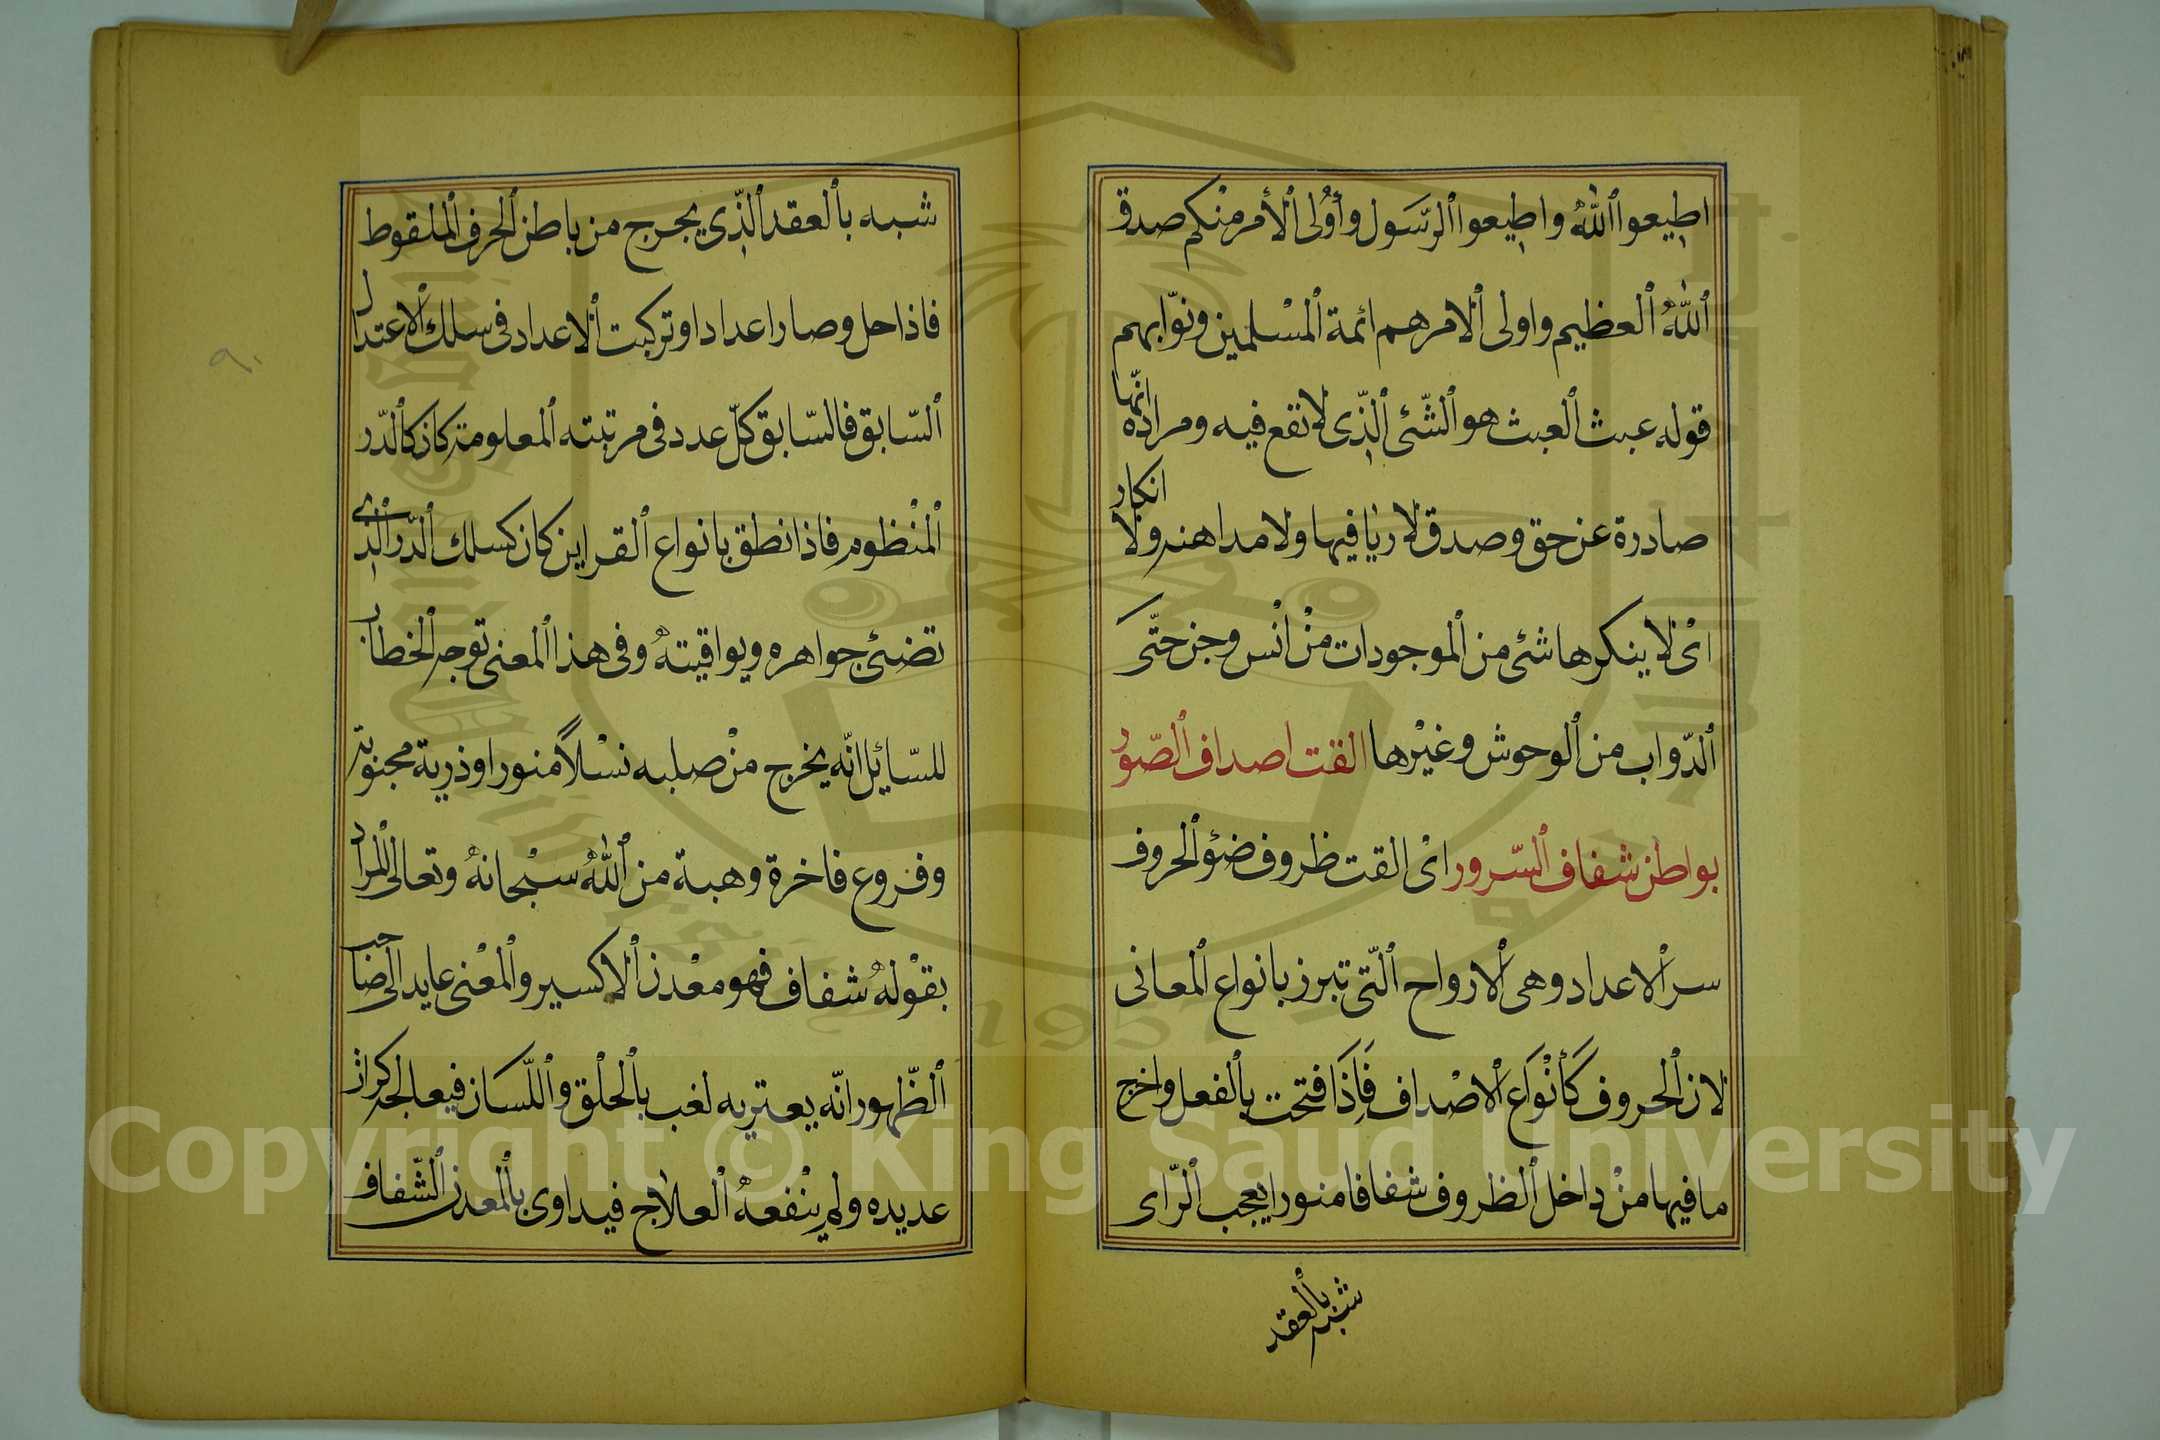 اطيعوا الله واطيعوا الرّسَول وأوُلى الأمر منْكم صدق
اللهُ العظيم واولى الامر هم ائمة المسْلمين ونوّابهم
قوله عبث العبث هو الشّئى الذّى لا نفع فيه ومراده انّها
صادرة عن حق وصدق لا ريا فيها ولا مداهنه ولا انكار
اىْ لا ينكرها شئى من الموجودات منْ انْس وجن حتّى
الدّواب من الوحوش وغيْرها القت اصداف الصّور
بواطن شفاف السّرور اىْ القت ظروف ضئو الحروف
سر الاعداد وهى الارواح الّتى تبرز بانواع المعانى
لان الحروف كَأنْوَاع الاصْداف فَاِذَا فتحت بالفعل واخرج
ما فيها منْ داخل الظروف شفافا منورا يعجب الرّاى
شبه بالعقد
شبه بالعقد الذّى يخرج من باطن الحرف الملقوط
فاذا حل وصار اعدادا وتركبت الاعداد فى سلك الاعتدال
السّابق فالسّابق كلّ عدد فى مرتبته المعلومة كان كالدّر
المنْظوم فاذا نطق بانواع القراين كان كسلك الدّر الذى
تضئى جواهره ويواقيتهُ وفى هذا المعنى توجه الخطاب
للسّائيل انّه يخرج منْ صلبه نسْلاً منورا وذرية مجنوبة
وفروع فاخرة وهبة من اللهُ سبْحانهُ وتعالى المراد
بقوْلهُ شفاف فهو معْدن الاكسير والمعْنى عايد الى صاحب
الظّهور انّه يعتريه لغب بالحلْق واللّسان فيعالجه كرات
عديده ولم ينْفعهُ العلاج فيداوى بالمعدن الشّفاف
٩٠
Copyright © King Saud University
1957